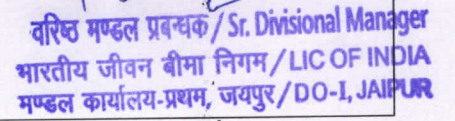 वरिष्ठ मण्डल प्रबन्धक/Sr. Divisional Manager
भारतीय जीवन बीमा निगम/LIC OF INDIA
मण्डल कार्यालय-प्रथम, जयपुर/DO-I, JAIPUR